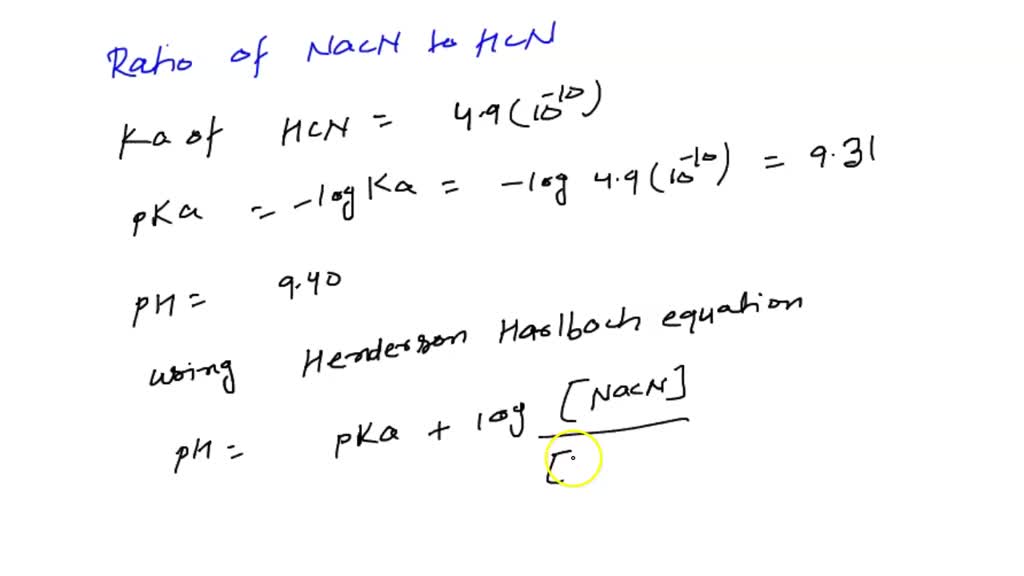 Ratio of NaCN to HCN
Ka of HCN = 4.9(10^-10)
pKa = -log Ka = -log 4.9(10^-10) = 9.31
pH = 9.40
using Henderson Haslboch equation
pH = pKa + log [NaCN]
[